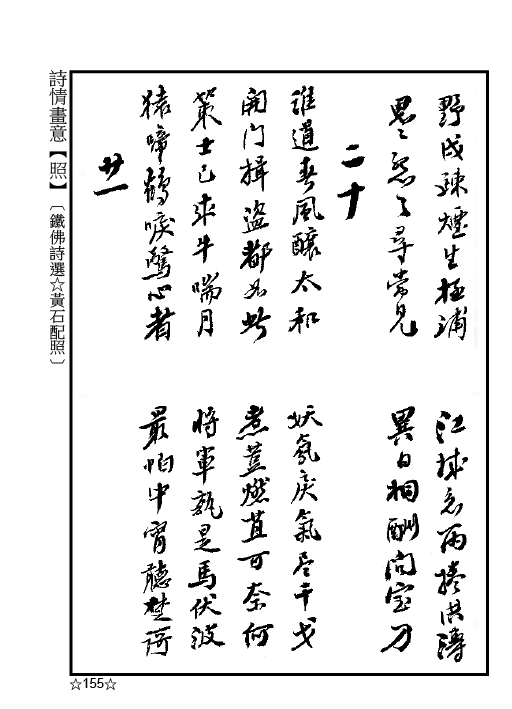 野戍疎煙生極浦
江城急雨捲洪濤
恩〻怨〻尋常見
異日相酬問寶刀
二十
誰道春風釀太和
妖氛戾氣尽干戈
開門揖盜都如此
煮荳燃萁可奈何
策士已來牛喘月
將軍孰是馬伏波
猿啼鶴唳驚心者
最怕中宵聽楚謌
廿一
詩情畫意【照】〔鐵佛詩選☆黃石配照〕
☆155☆